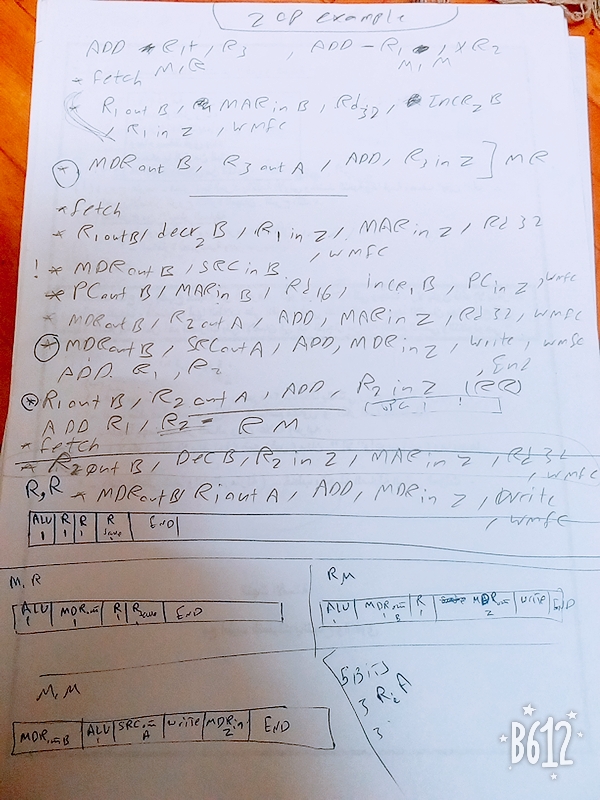 2 OP example
ADD R1+, R3 , ADD -R1 , XR2
M,R M,M
* fetch
* R1out B, MARin B, Rd32, INCR2 B
, R1 in Z, WMFC
* MDRout B, R3 out A, ADD, R3 in Z ] MR
* fetch
* R1outB, decr2 B, R1 in Z, MARin Z, Rd 32
, WMFC
! * MDRout B, SRC in B
* PCout B, MARin B, Rd16, incr1 B, PCin Z, WMFC
* MDRout B, R2 out A, ADD, MARin Z, Rd 32, WMFC
* MDRout B, SRCout A, ADD, MDRin Z, write, WMFC
, End
ADD R1, R2
* R1out B, R2 out A, ADD, R2 in Z (RR)
ADD R1, R2 RM
* fetch
* R2out B, DecB, R2 in Z, MARin Z, Rd 32
, WMFC
R,R * MDRoutB, R1out A, ADD, MDRin Z, write
, WMFC
ALU 1 R 1 R 1 R save END
M,R R,M
ALU 1 MDRout 1 R 1 R save END
ALU 1 MDRout B R 1 MDRout Z write END
M,M
MDRoutB ALU 1 SRCout A write MDRin Z END
5Bits
3 R2 A
3
B612